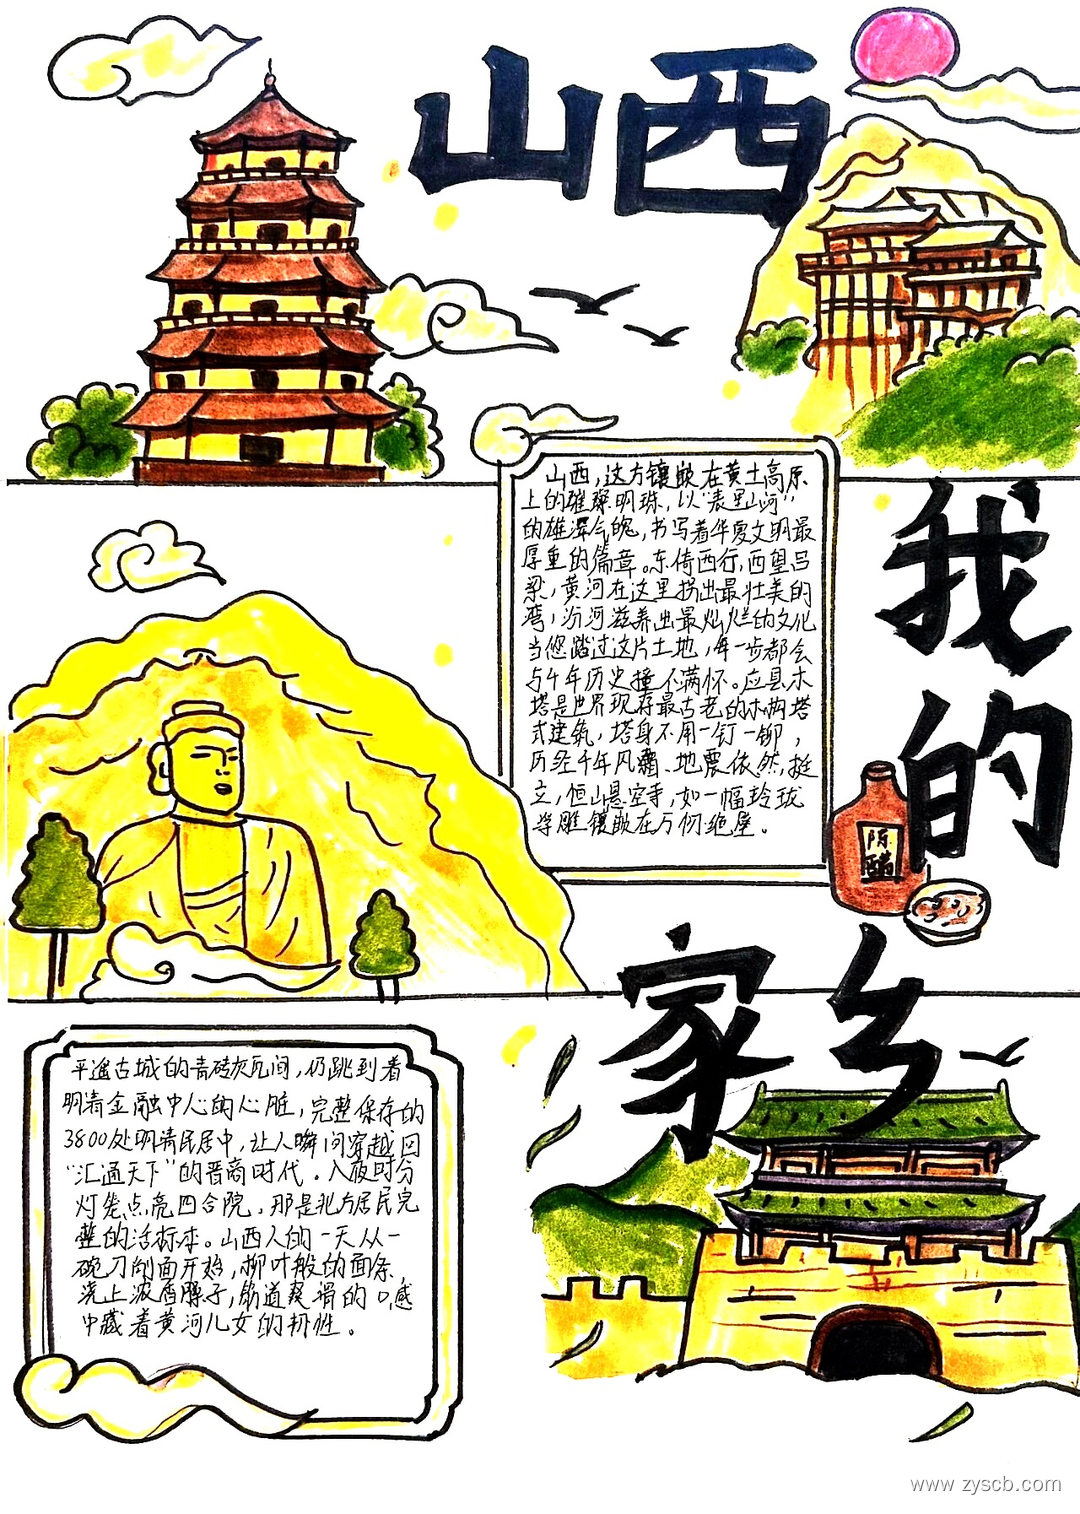 山西
我的
家乡
山西，这方镶嵌在黄土高原
上的璀璨明珠，以“表里山河”
的雄浑气魄，书写着华夏文明最
厚重的篇章。东倚西行，西望吕
梁，黄河在这里拐出最壮美的
湾，汾河滋养出最灿烂的文化
当您踏过这片土地，每一步都会
与千年历史撞个满怀。应县木
塔是世界现存最古老的木构塔
式建筑，塔身不用一钉一铆，
历经千年风霜、地震依然挺
立，恒山悬空寺，如一幅玲珑
浮雕镶嵌在万仞绝壁。
陈醋
平遥古城的青砖灰瓦间，仍跳动着
明清金融中心的心脏，完整保存的
3800处明清民居中，让人瞬间穿越回
“汇通天下”的晋商时代。入夜时分
灯笼点亮四合院，那是北方居民完
整的活标本。山西人的一天从一
碗刀削面开始，柳叶般的面条
浇上浓香臊子，筋道爽滑的口感
中藏着黄河儿女的韧性。
www.zyscb.com